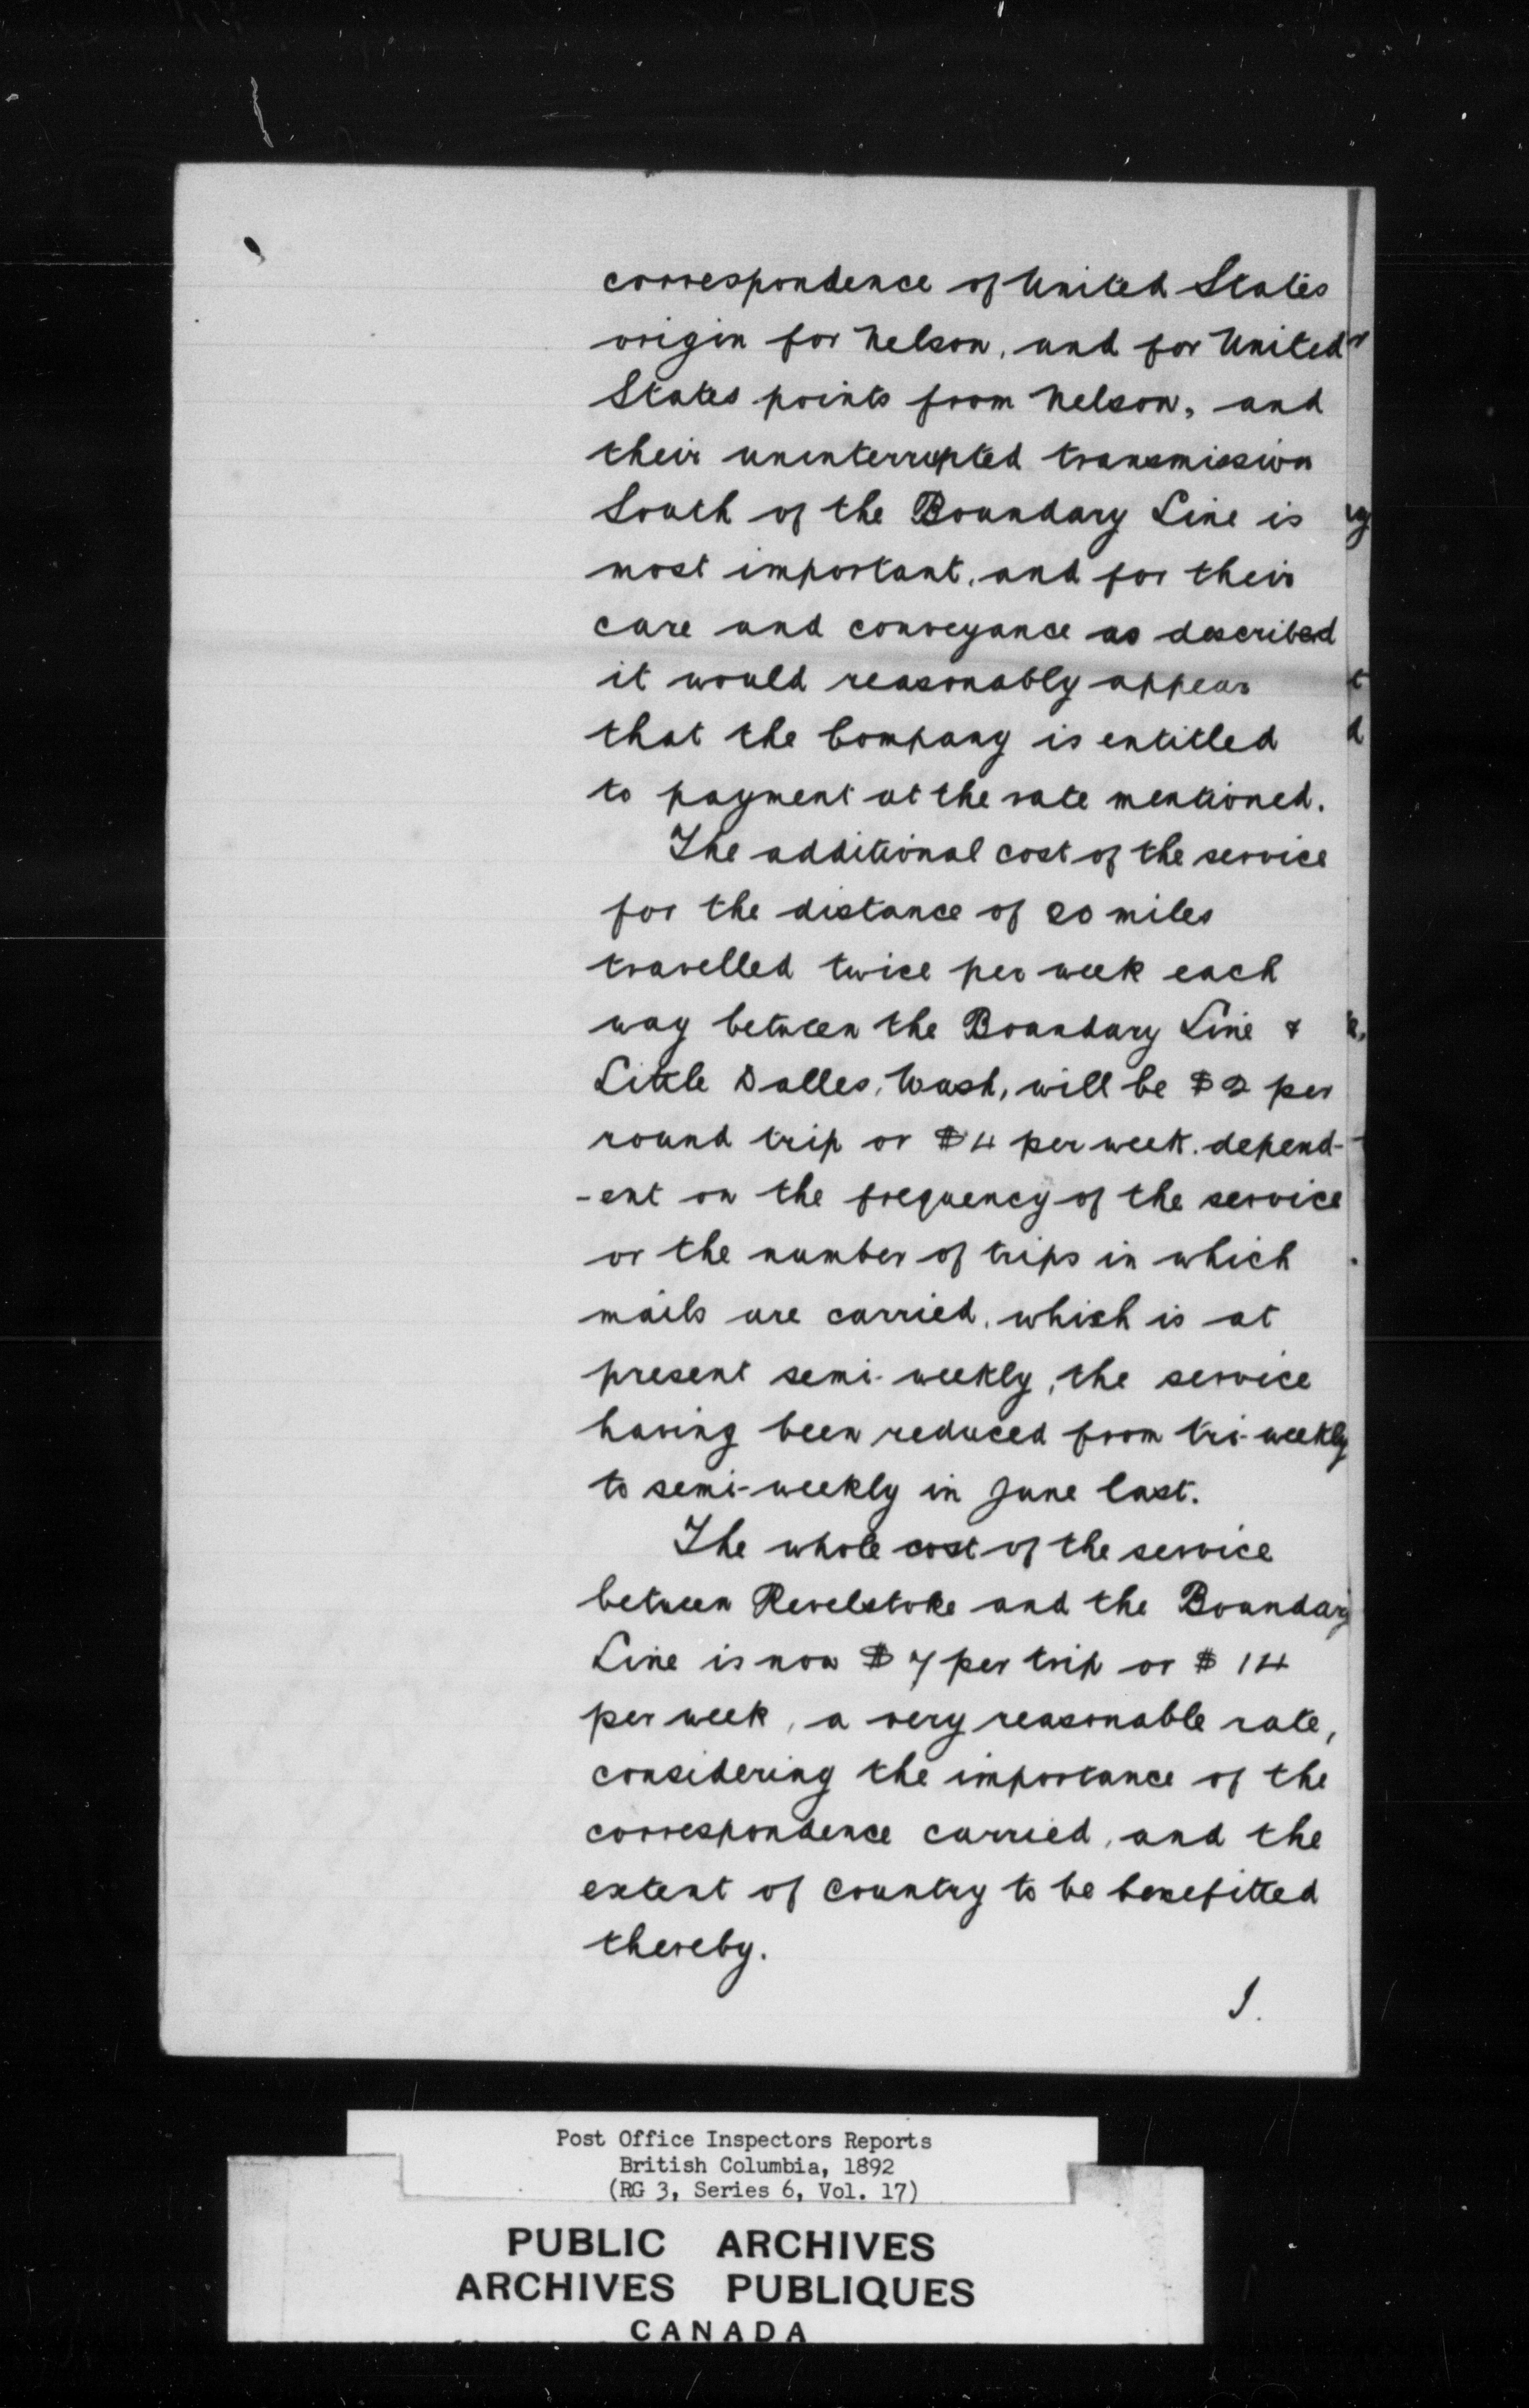 correspondence of United States
origin for Nelson, and for United
States points from Nelson, and
their uninterrupted transmission
South of the Boundary Line is
most important, and for their
care and conveyance as described
it would reasonably appear
that the Company is entitled
to payment at the rate mentioned.
The additional cost of the service
for the distance of 20 miles
travelled twice per week each
way between the Boundary Line &
Little Dalles, Wash, will be $2 per
round trip or $4 per week. depend-
-ent on the frequency of the service
or the number of trips in which
mails are carried, which is at
present semi-weekly, the service
having been reduced from tri-weekly
to semi-weekly in June last.
The whole cost of the service
between Revelstoke and the Boundary
Line is now $7 per trip or $14
per week, a very reasonable rate,
considering the importance of the
correspondence carried, and the
extent of Country to be benefitted
thereby.
I.
Post Office Inspectors Reports
British Columbia, 1892
(RG 3, Series 6, Vol. 17)
PUBLIC ARCHIVES
ARCHIVES PUBLIQUES
CANADA